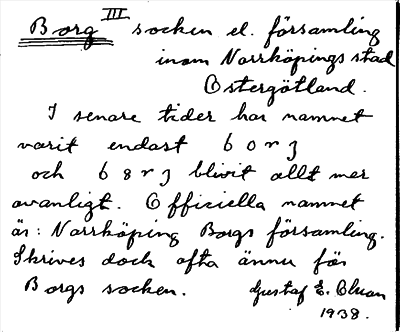 Borg III socken el. församling
inom Norrköpings stad
Östergötland.
I senare tider har namnet
varit endast borg
och b8rg blivit allt mer
ovanligt. Officiella namnet
är: Norrköping Borgs församling.
Skrives dock ofta ännu för
Borgs socken. Gustaf E.
1938.